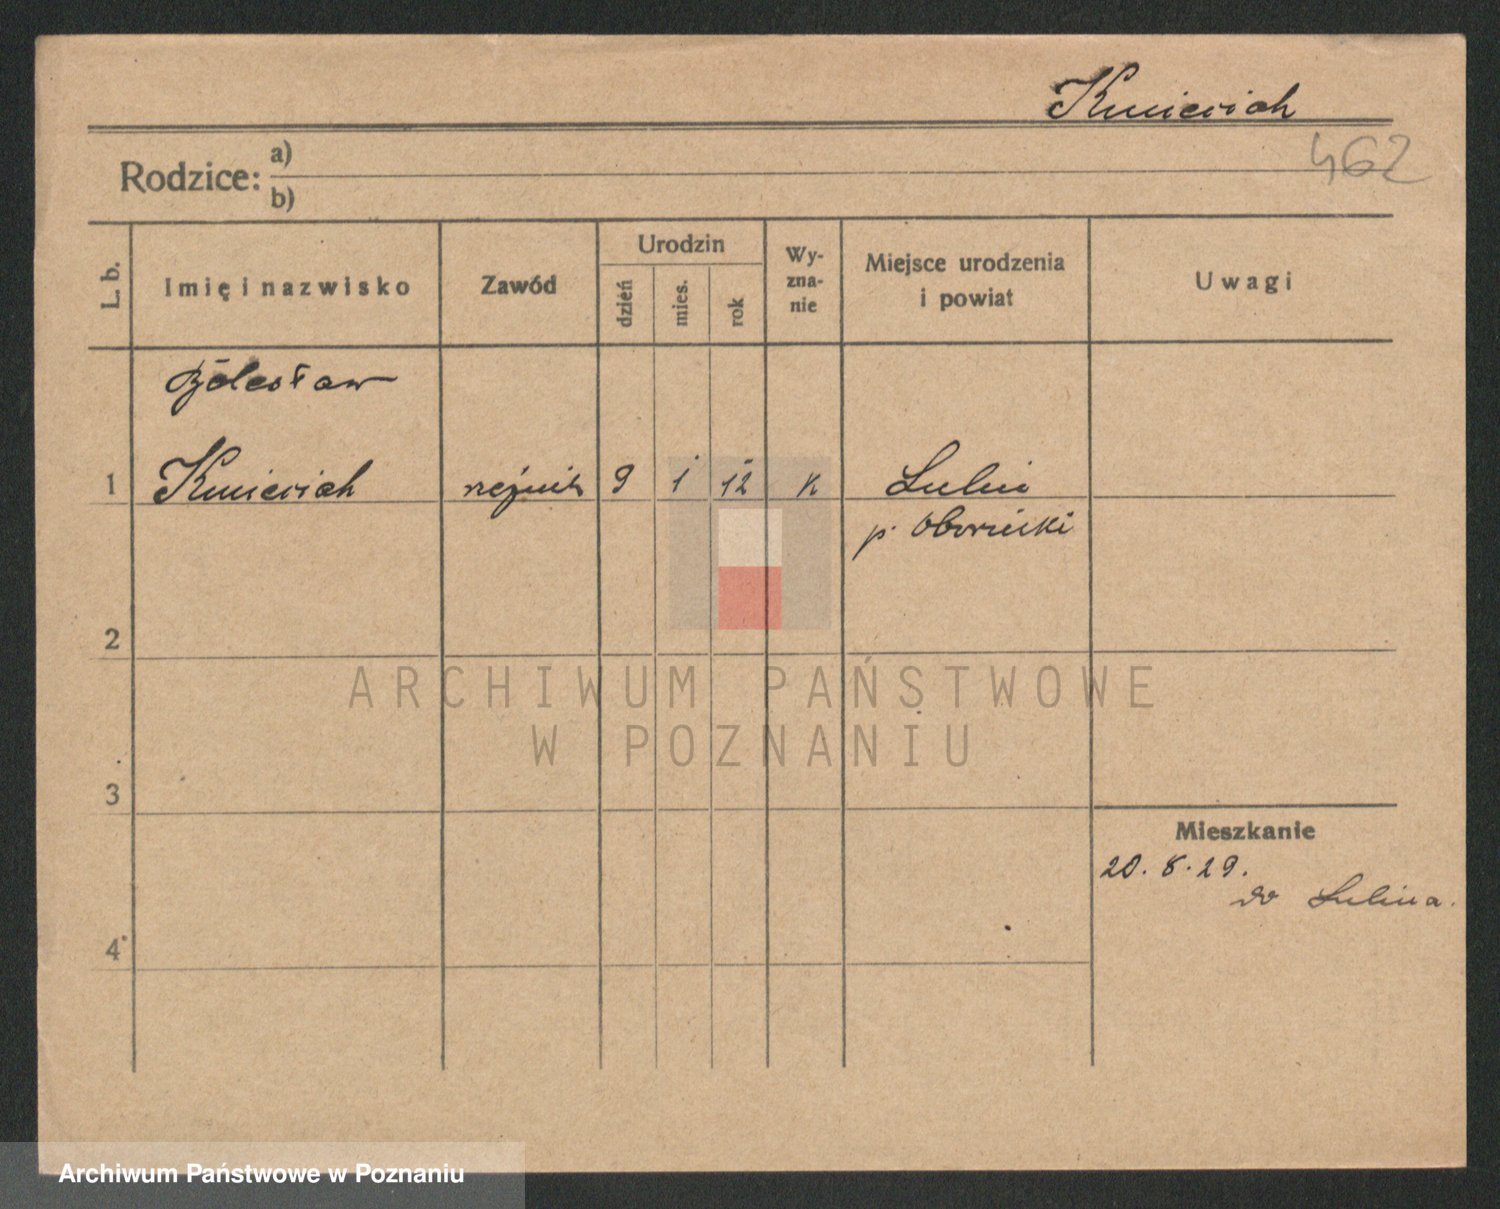 Kmieciak
462
Rodzice: a)
b)
L. b. Imię i nazwisko Zawód Urodzin dzień mies. rok Wy-zna-nie Miejsce urodzenia i powiat Uwagi
Bolesław
1 Kmieciak rzeźnik 9 1 12 K Lulin
p. Obornicki
2
ARCHIWUM PAŃSTWOWE
W POZNANIU
3
Mieszkanie
20. 8. 29.
do Lulina.
4
Archiwum Państwowe w Poznaniu